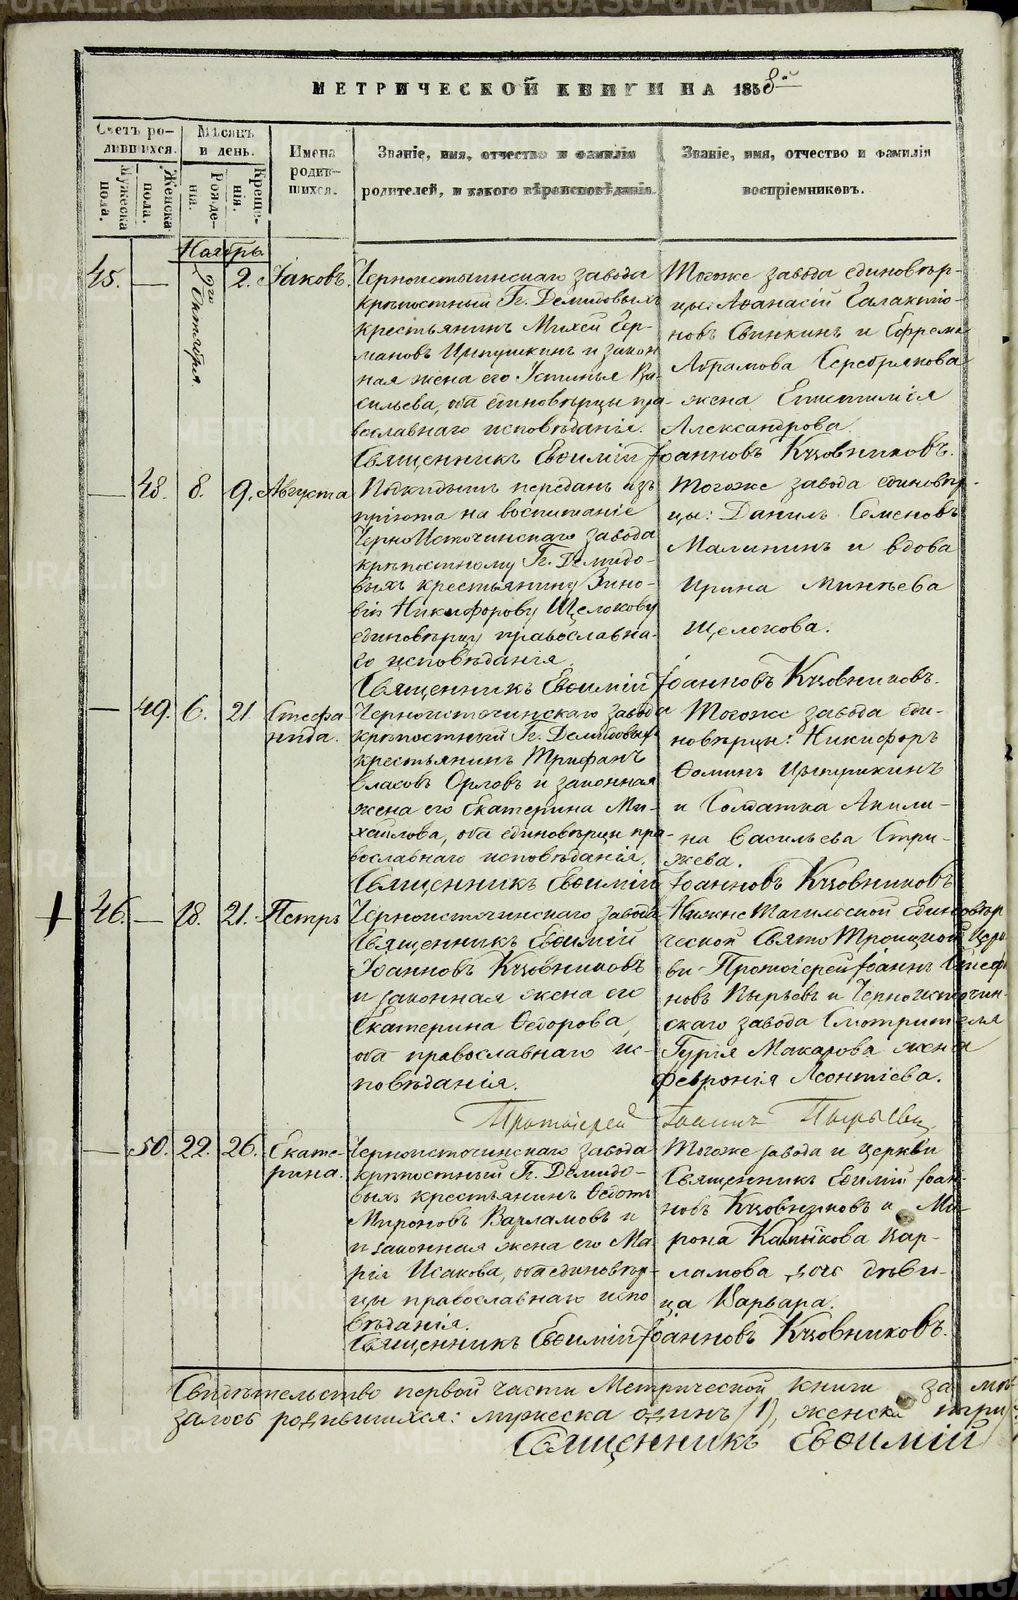 МЕТРИЧЕСКОЙ КНИГИ НА 1858й
Счетъ родившихся.
Мужеска пола.
Женска пола.
Мѣсяцъ и день.
Рожденія.
Крещенія.
Имена родившихся.
Званіе, имя, отчество и фамилія
родителей, и какого вѣроисповѣданія.
Званіе, имя, отчество и фамилія
воспріемниковъ.
Ноябрь
45. — 9го Октября 2. Іаковъ.
Черноисточинскаго завода
крѣпостный Гг. Демидовыхъ
крестьянинъ Михей Гер-
мановъ Цыпушкинъ и закон
ная жена его Устинья Ва-
сильева, оба единовѣрцы пра-
вославнаго исповѣданія.
Тогоже завода единовѣр-
цы: Аѳанасій Галактіо-
новъ Свинкинъ и Ефрема
Абрамова Серебрякова
жена Епистимія
Александрова.
Священникъ Евѳимій Іоанновъ Кузовниковъ.
— 48. 8. 9. Августа
Подкидышъ переданъ изъ
пріюта на воспитаніе
ЧерноИсточинскаго завода
крѣпостному Гг. Демидо-
выхъ крестьянину Зино-
вію Никифорову Щелокову
единовѣрцу православна-
го исповѣданія.
Тогоже завода единовѣр-
цы: Данилъ Семеновъ
Малининъ и вдова
Ирина Минѣева
Щелокова.
Священникъ Евѳимій Іоанновъ Кузовниковъ.
— 49. 6. 21 Стефа-
нида.
Черноисточинскаго завода
крѣпостный Гг. Демидовыхъ
крестьянинъ Трифанъ
Власовъ Орловъ и законная
жена его Екатерина Ми-
хайлова, оба единовѣрцы пра-
вославнаго исповѣданія.
Тогоже завода еди-
новѣрцы: Никифоръ
Ѳоминъ Цыпушкинъ
и Солдатка Акили-
на Васильева Стри-
жева.
Священникъ Евѳимій Іоанновъ Кузовниковъ
46. — 18. 21. Петръ
Черноисточинскаго завода
Священникъ Евѳимій
Іоанновъ Кузовниковъ
и законная жена его
Екатерина Ѳедорова,
оба православнаго ис-
повѣданія.
НижнеТагильской Единовѣр
ческой СвятоТроицкой Церк
ви Протоіерей Іоаннъ Стефа
новъ Пырьевъ и Черноисточин-
скаго завода Смотрителя
Гурія Макарова жена
Февронія Леонтіева.
Протоіерей Іоаннъ Пырьевъ
— 50. 22. 26. Екате-
рина.
Черноисточинскаго завода
крѣпостный Гг. Демидо-
выхъ крестьянинъ Ѳедотъ
Мироновъ Варламовъ и
и законная жена его Ма
рія Исакова, оба единовѣр-
цы православнаго испо
вѣданія.
Тогоже завода и церкви
Священникъ Евѳимій Іоан-
новъ Кузовниковъ и Ми-
рона Вар-
ламова дочь дѣви-
ца Варвара.
Священникъ Евѳимій Іоанновъ Кузовниковъ.
Свидѣтельство первой части Метрической книги
залось родившихся: мужеска одинъ /1/, женска три
Священникъ Евѳимій